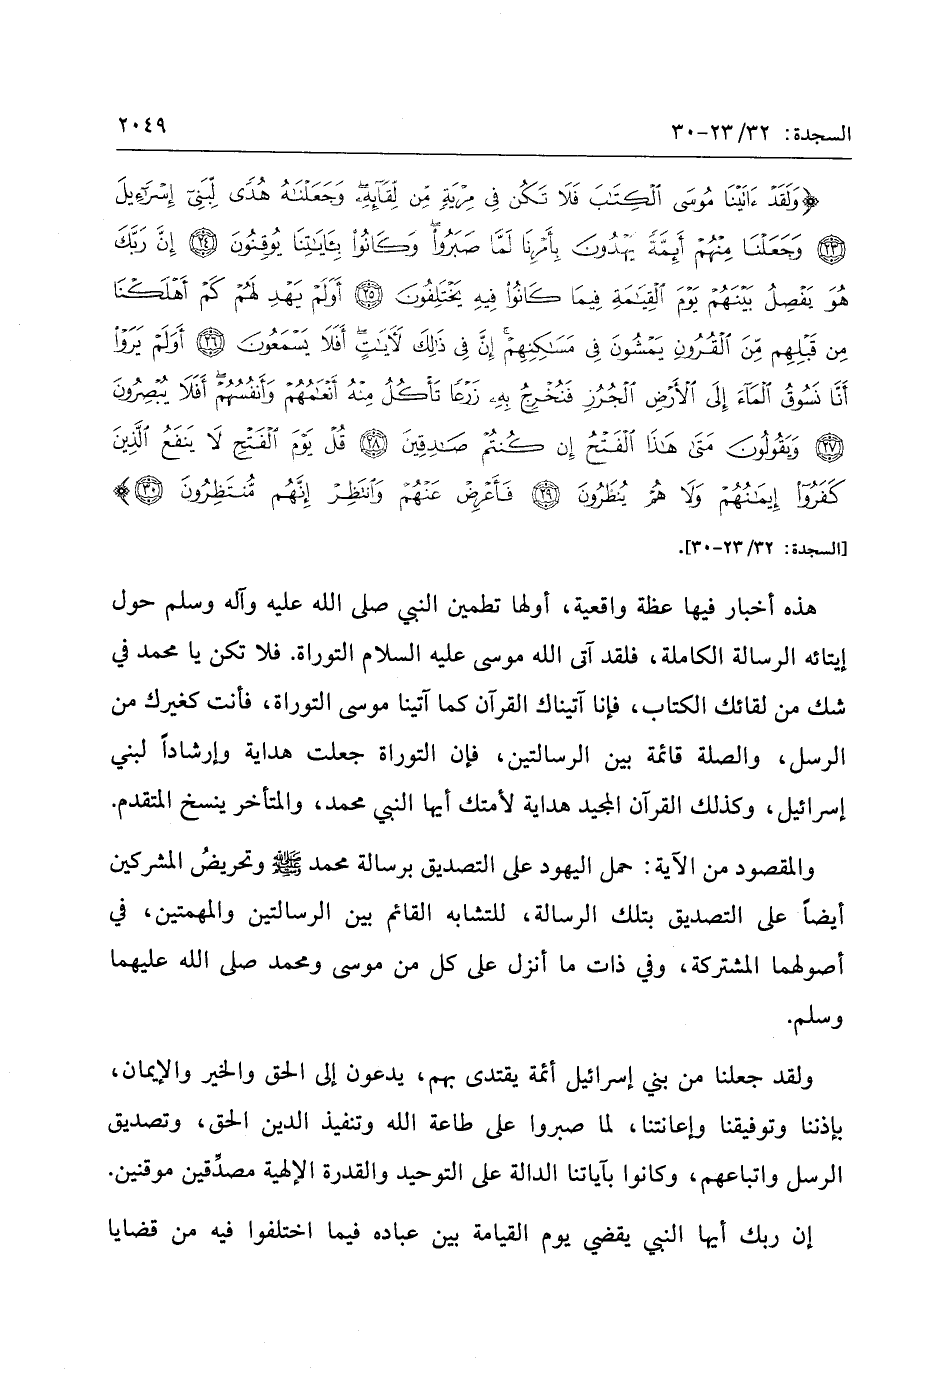 السجدة: ٣٢/ ٢٣-٣٠ ٢٠٤٩
﴿وَلَقَدْ ءَاتَيْنَا مُوسَى ٱلْكِتَٰبَ فَلَا تَكُن فِى مِرْيَةٍ مِّن لِّقَآئِهِۦۖ وَجَعَلْنَٰهُ هُدًى لِّبَنِىٓ إِسْرَٰٓءِيلَ
٢٣ وَجَعَلْنَا مِنْهُمْ أَئِمَّةً يَهْدُونَ بِأَمْرِنَا لَمَّا صَبَرُواْۖ وَكَانُواْ بِـَٔايَٰتِنَا يُوقِنُونَ ٢٤ إِنَّ رَبَّكَ
هُوَ يَفْصِلُ بَيْنَهُمْ يَوْمَ ٱلْقِيَٰمَةِ فِيمَا كَانُواْ فِيهِ يَخْتَلِفُونَ ٢٥ أَوَلَمْ يَهْدِ لَهُمْ كَمْ أَهْلَكْنَا
مِن قَبْلِهِم مِّنَ ٱلْقُرُونِ يَمْشُونَ فِى مَسَٰكِنِهِمْۚ إِنَّ فِى ذَٰلِكَ لَأٓيَٰتٍۖ أَفَلَا يَسْمَعُونَ ٢٦ أَوَلَمْ يَرَوْاْ
أَنَّا نَسُوقُ ٱلْمَآءَ إِلَى ٱلْأَرْضِ ٱلْجُرُزِ فَنُخْرِجُ بِهِۦ زَرْعًا تَأْكُلُ مِنْهُ أَنْعَٰمُهُمْ وَأَنفُسُهُمْۖ أَفَلَا يُبْصِرُونَ
٢٧ وَيَقُولُونَ مَتَىٰ هَٰذَا ٱلْفَتْحُ إِن كُنتُمْ صَٰدِقِينَ ٢٨ قُلْ يَوْمَ ٱلْفَتْحِ لَا يَنفَعُ ٱلَّذِينَ
كَفَرُوٓاْ إِيمَٰنُهُمْ وَلَا هُمْ يُنظَرُونَ ٢٩ فَأَعْرِضْ عَنْهُمْ وَٱنتَظِرْ إِنَّهُم مُّنتَظِرُونَ ٣٠﴾
[السجدة: ٣٢/ ٢٣-٣٠].
هذه أخبار فيها عظة واقعية، أولها تطمين النبي صلى الله عليه وآله وسلم حول
إيتائه الرسالة الكاملة، فلقد آتى الله موسى عليه السلام التوراة. فلا تكن يا محمد في
شك من لقائك الكتاب، فإنا آتيناك القرآن كما آتينا موسى التوراة، فأنت كغيرك من
الرسل، والصلة قائمة بين الرسالتين، فإن التوراة جعلت هداية وإرشاداً لبني
إسرائيل، وكذلك القرآن المجيد هداية لأمتك أيها النبي محمد، والمتأخر ينسخ المتقدم.
والمقصود من الآية: حمل اليهود على التصديق برسالة محمد ﷺ وتحريضُ المشركين
أيضاً على التصديق بتلك الرسالة، للتشابه القائم بين الرسالتين والمهمتين، في
أصولهما المشتركة، وفي ذات ما أنزل على كل من موسى ومحمد صلى الله عليهما
وسلم.
ولقد جعلنا من بني إسرائيل أئمة يقتدى بهم، يدعون إلى الحق والخير والإيمان،
بإذننا وتوفيقنا وإعانتنا، لما صبروا على طاعة الله وتنفيذ الدين الحق، وتصديق
الرسل واتباعهم، وكانوا بآياتنا الدالة على التوحيد والقدرة الإلهية مصدِّقين موقنين.
إن ربك أيها النبي يقضي يوم القيامة بين عباده فيما اختلفوا فيه من قضايا